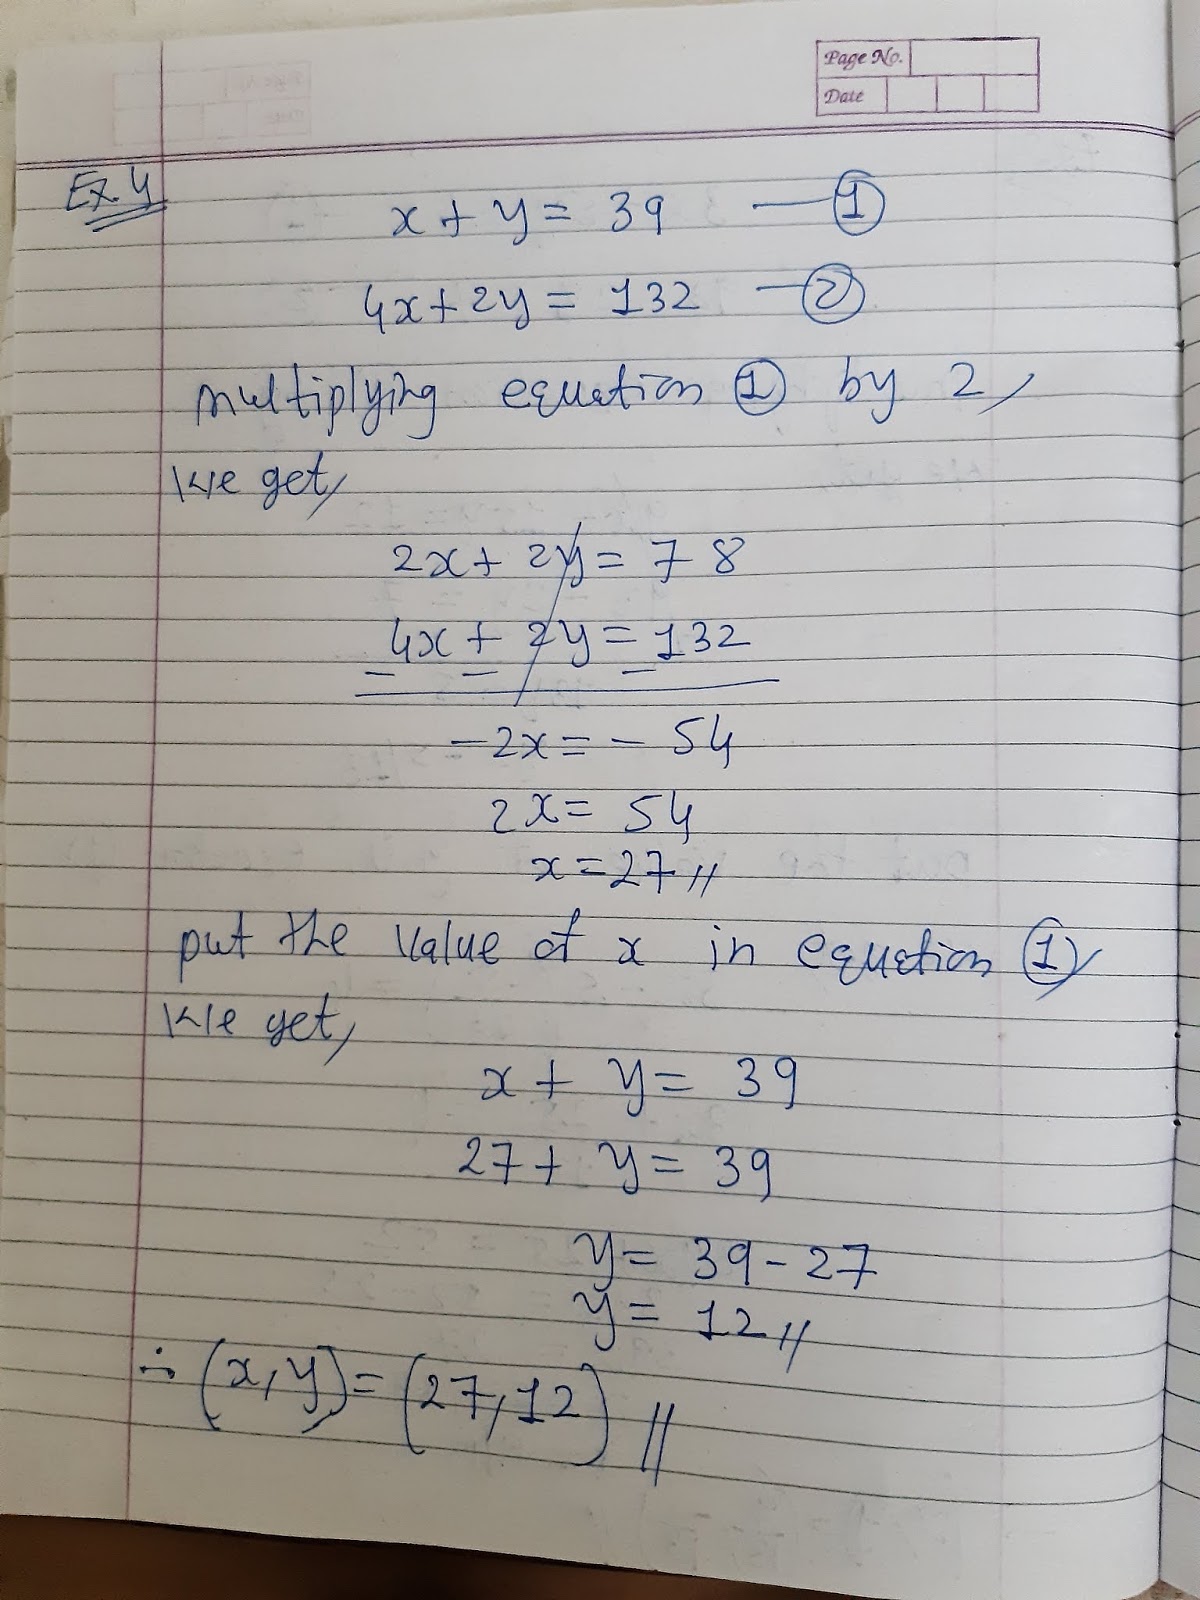 Page No.
Date
Ex. 4
x + y = 39 — ①
4x + 2y = 132 — ②
multiplying equation ① by 2,
we get,
2x + 2y = 78
4x + 2y = 132
- - -
-2x = - 54
2x = 54
x = 27 //
put the value of x in equation ①,
we get,
x + y = 39
27 + y = 39
y = 39 - 27
y = 12 //
∴ (x, y) = (27, 12) //